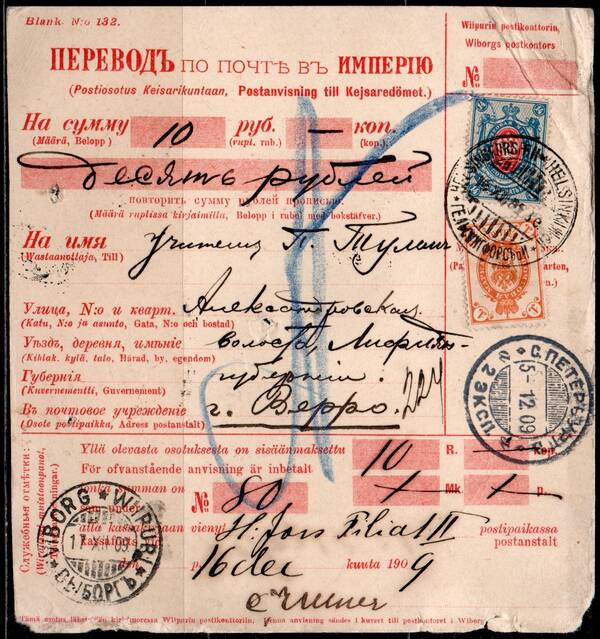 Blank. N:o 132.
Wiipurin postikonttorin,
Wiborgs postkontors
ПЕРЕВОДЪ ПО ПОЧТѢ ВЪ ИМПЕРІЮ
(Postiosotus Keisarikuntaan, Postanvisning till Kejsaredömet.)
№
На сумму 10 руб. — коп.
(Määrä, Belopp) (rupl. rub.) (kop.)
Десять рублей
повторить сумму рублей прописью.
(Määrä ruplissa kirjaimilla, Belopp i rubel med bokstäfver.)
На имя Учителя П. Туланъ
(Wastaanottaja, Till)
Улица, N:o и кварт. Александровская
(Katu, N:o ja asunto, Gata, N:o och bostad)
Уѣздъ, деревня, имѣніе волость, Лифлян-
(Kihlak. kylä, talo, Härad, by, egendom)
Губернія губерніи
(Kuvernementti, Guvernement)
Въ почтовое учрежденіе г. Верро. 224
(Osote postipaikka, Adress postanstalt)
HELSINGFORS
HELSINKI
ГЕЛЬСИНГФОРСЪ
С.ПЕТЕРБУРГЪ
5-12.09
2 ЭКСП.
Служебныя отмѣтки:
Yllä olevasta osotuksesta on sisäänmaksettu 10 R. kop.
För ofvanstående anvisning är inbetalt
jonka summan on Mk p.
som under
№ 80
alla kassakirjaan vienyt H:fors Filial II postipaikassa
kassaförts af postanstalt
den 16 dec kuuta 1909
WIBORG WIIPURI
17.XII.09
ВЫБОРГЪ